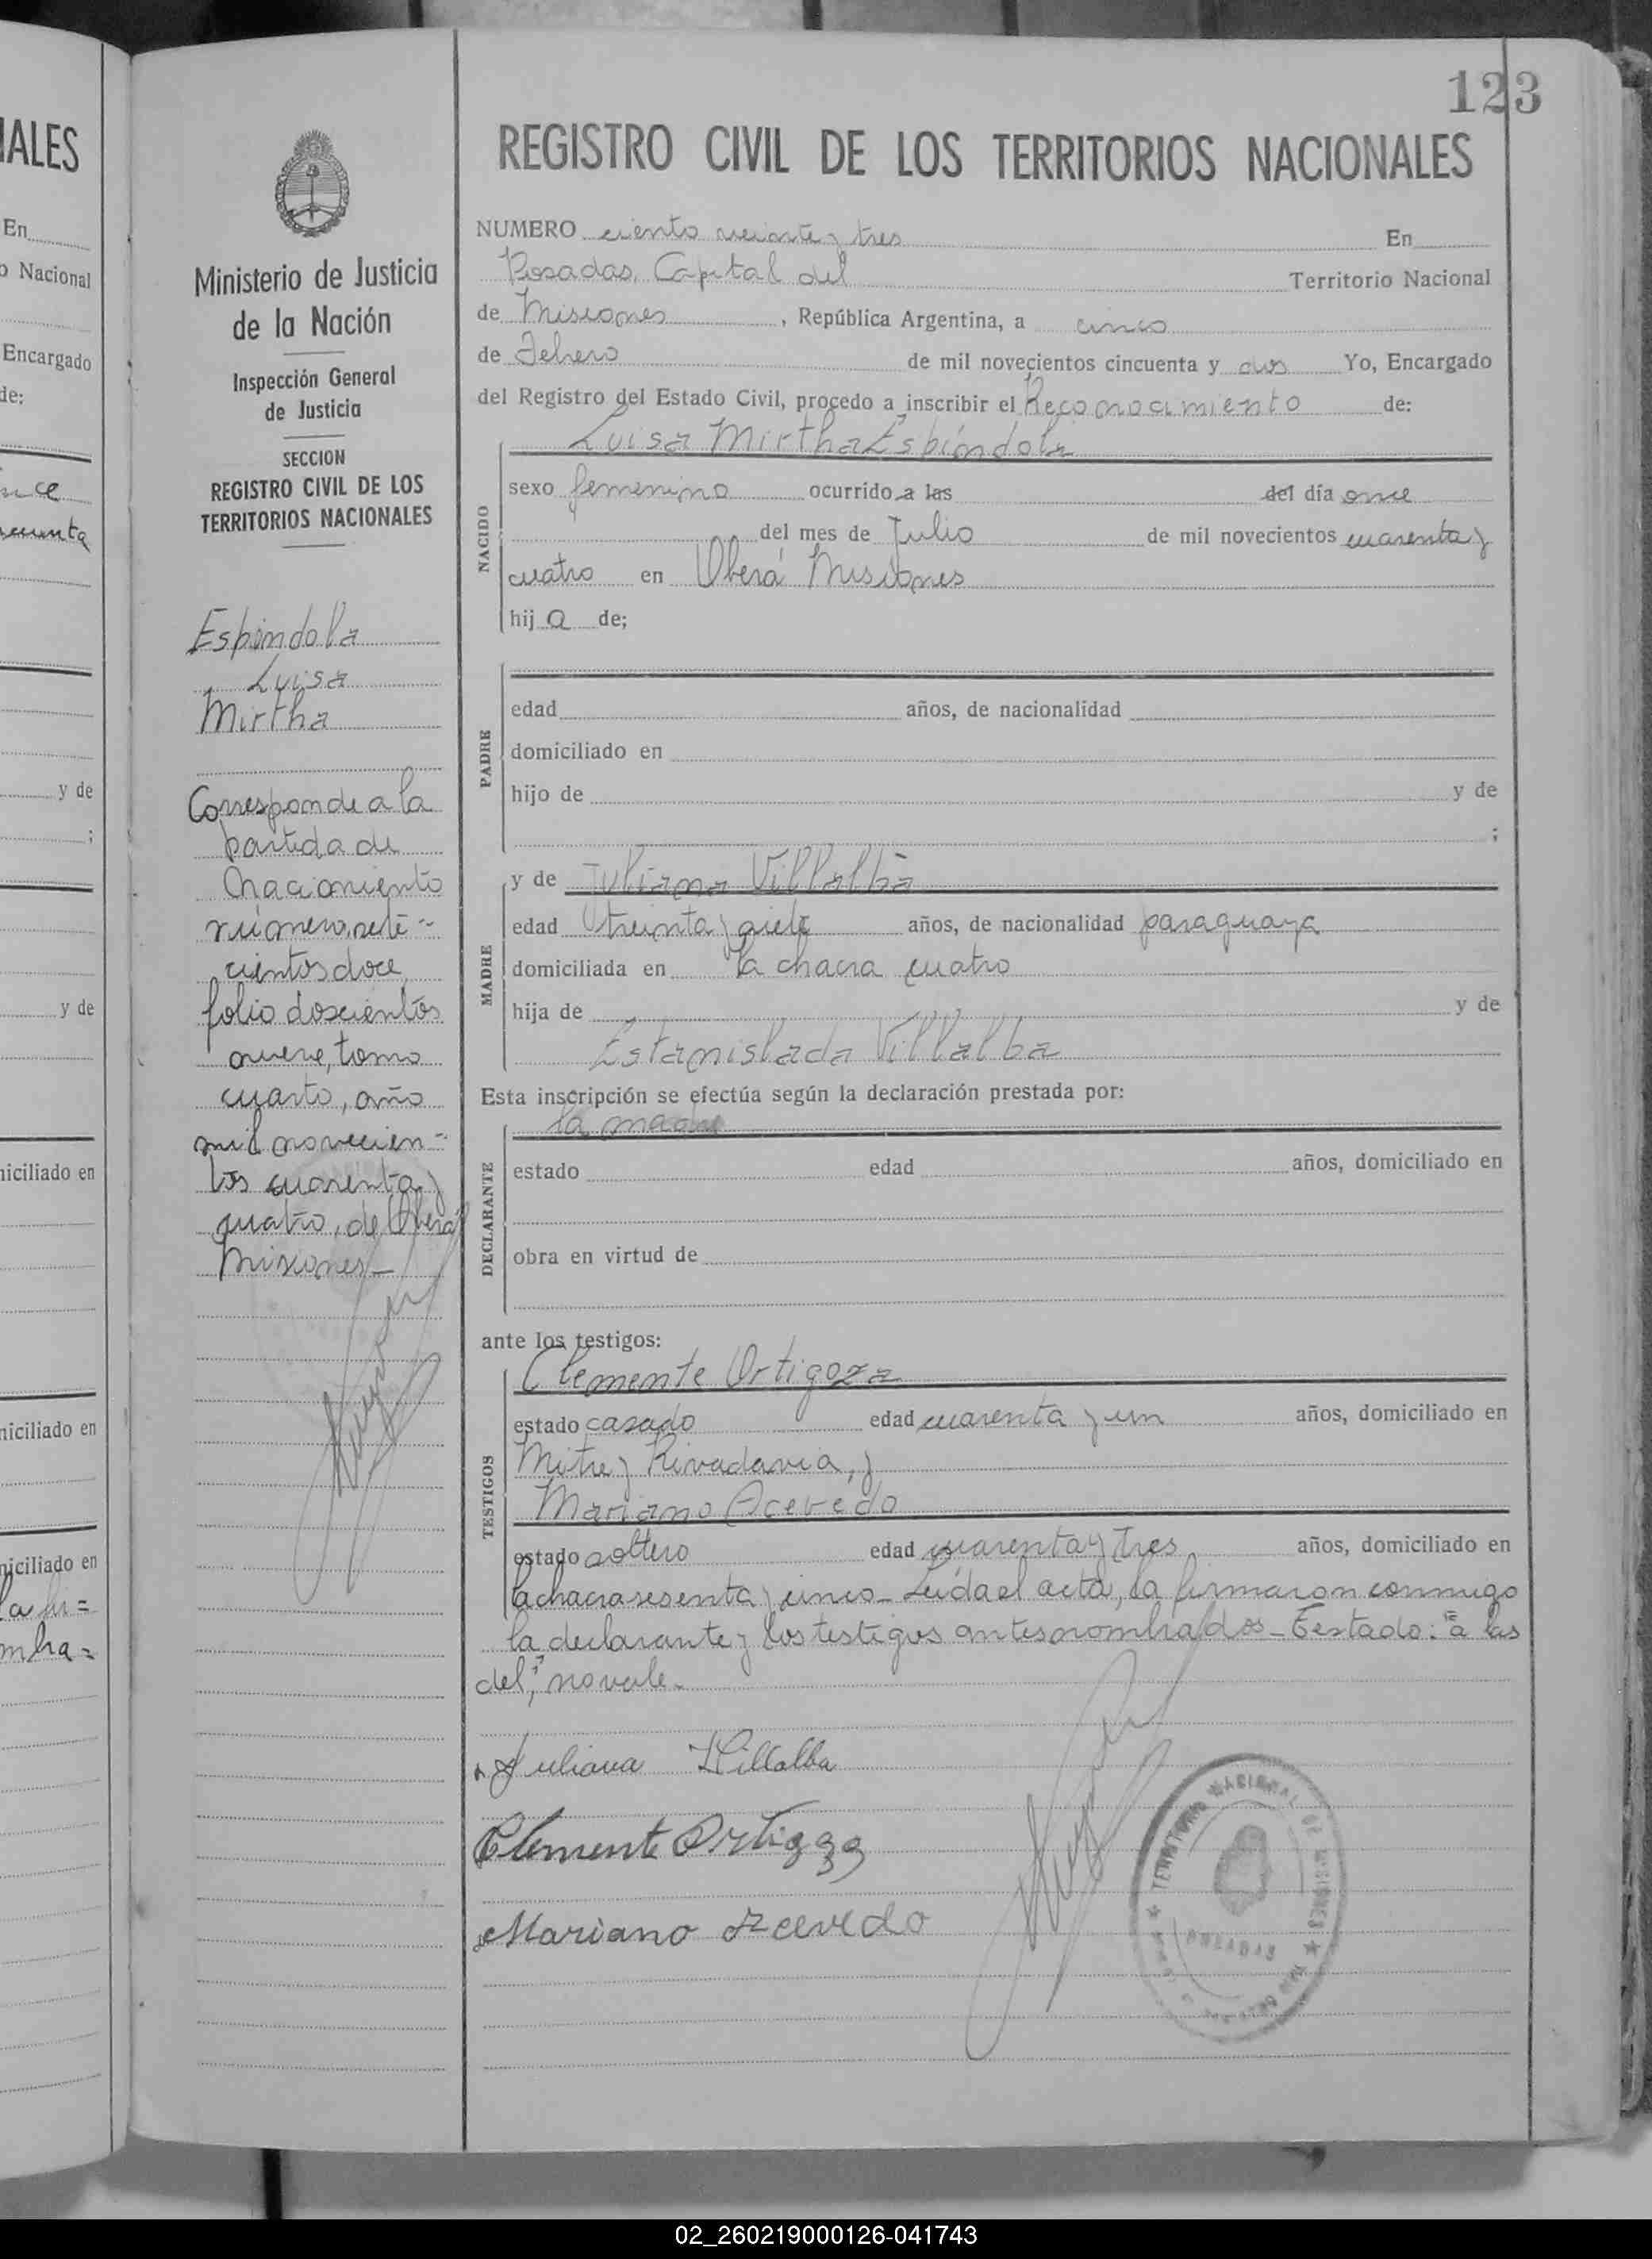 123
REGISTRO CIVIL DE LOS TERRITORIOS NACIONALES
NUMERO ciento veinte y tres En
Posadas, Capital del Territorio Nacional
de Misiones, República Argentina, a cinco
de Febrero de mil novecientos cincuenta y dos Yo, Encargado
del Registro del Estado Civil, procedo a inscribir el Reconocimiento de:
Luisa Mirtha Espíndola
NACIDO
sexo femenino ocurrido a las del día once
del mes de Julio de mil novecientos cuarenta y
cuatro en Oberá Misiones
hija de;
PADRE
edad años, de nacionalidad
domiciliado en
hijo de y de
;
MADRE
y de Juliana Villalba
edad treinta y siete años, de nacionalidad paraguaya
domiciliada en la chacra cuatro
hija de y de
Estanislada Villalba
Esta inscripción se efectúa según la declaración prestada por:
la madre
DECLARANTE
estado edad años, domiciliado en
obra en virtud de
ante los testigos:
TESTIGOS
Clemente Ortigoza
estado casado edad cuarenta y un años, domiciliado en
Mitre y Rivadavia, y
Mariano Acevedo
estado soltero edad cuarenta y tres años, domiciliado en
la chacra sesenta y cinco_ Leída el acta, la firmaron conmigo
la declarante y los testigos antes nombrados_ Testado: "a las
del", no vale_
Juliana Villalba
Clemente Ortigoza
Mariano Acevedo
TERRITORIO NACIONAL DE MISIONES
Ministerio de Justicia
de la Nación
Inspección General
de Justicia
SECCION
REGISTRO CIVIL DE LOS
TERRITORIOS NACIONALES
Espíndola
Luisa
Mirtha
Corresponde a la
partida de
nacimiento
número sete=
cientos doce,
folio doscientos
nueve, tomo
cuarto, año
mil novecien=
tos cuarenta y
cuatro, de Oberá
Misiones_
IALES
En
o Nacional
Encargado
de:
y de
;
y de
niciliado en
niciliado en
niciliado en
02_260219000126-041743